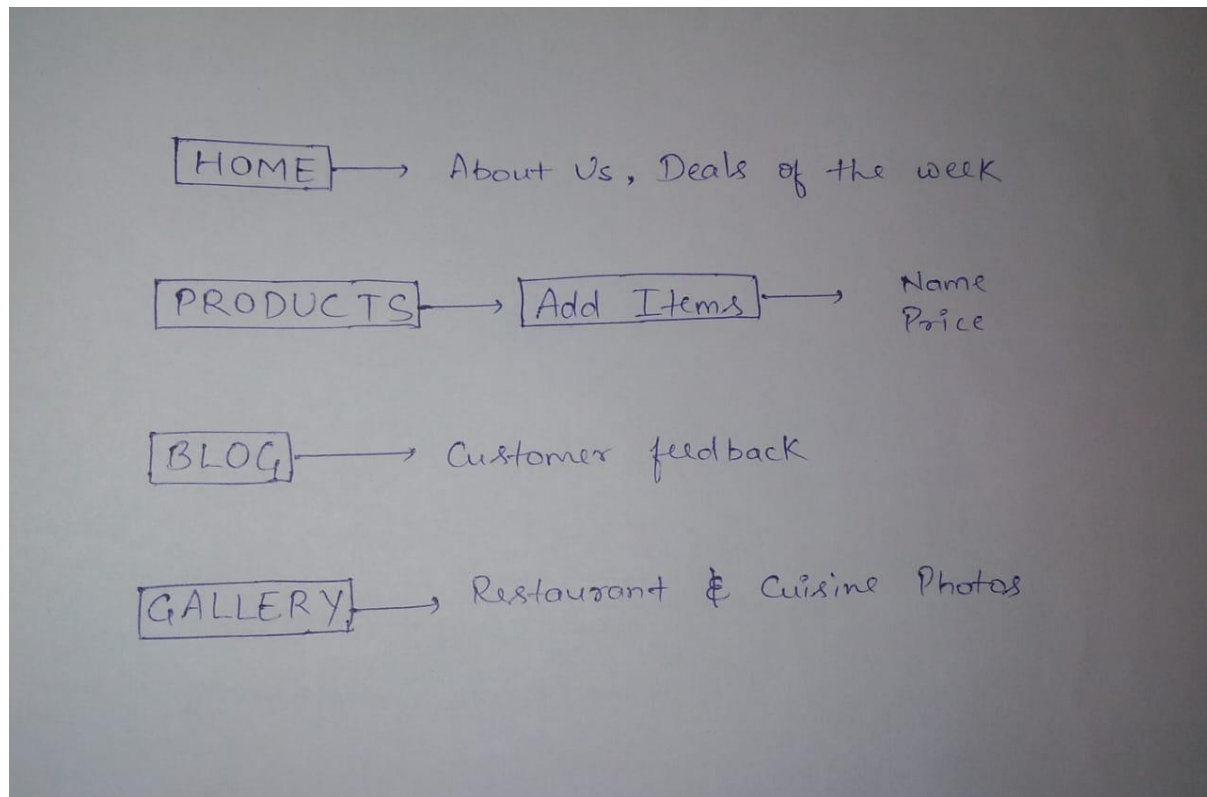 HOME → About Us, Deals of the week
PRODUCTS → Add Items → Name
Price
BLOG → Customer feedback
GALLERY → Restaurant & Cuisine Photos